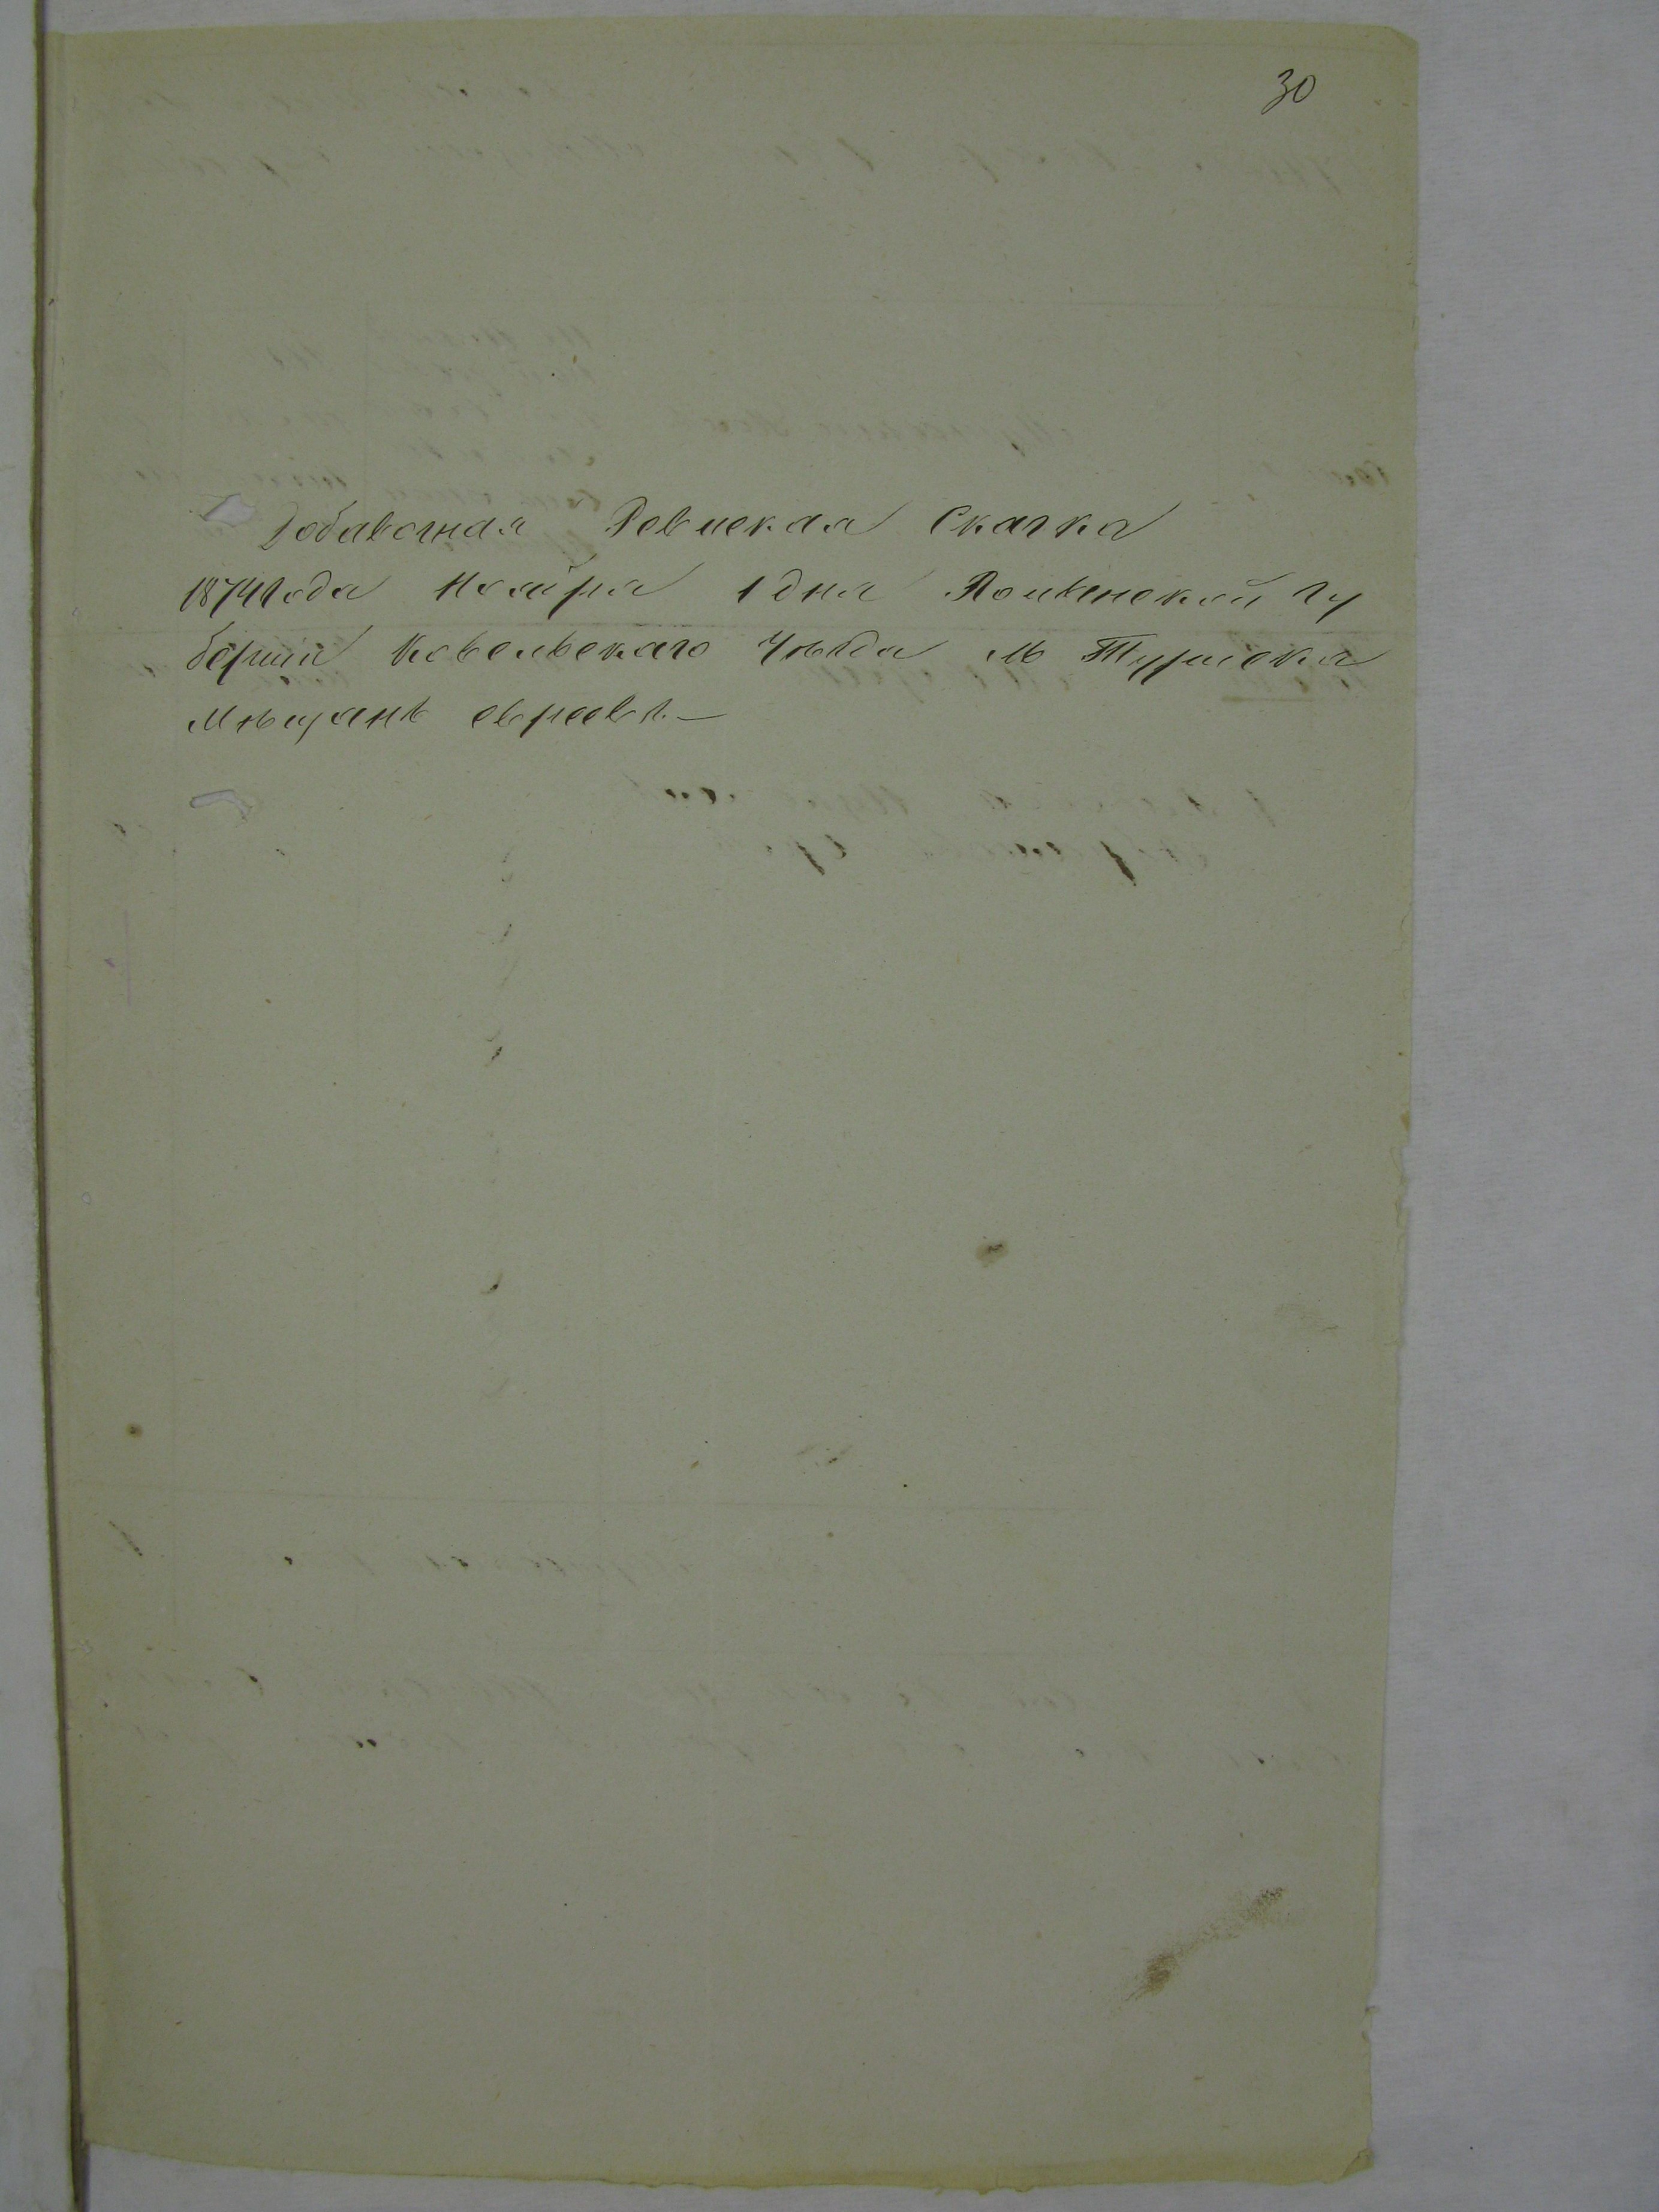 30
Добавочная Ревиская Скаска
1874 года Ноября 1 дня Волынской Гу
берніи Ковельскаго Уѣзда М Турійска
Мѣщанъ евреевъ. —